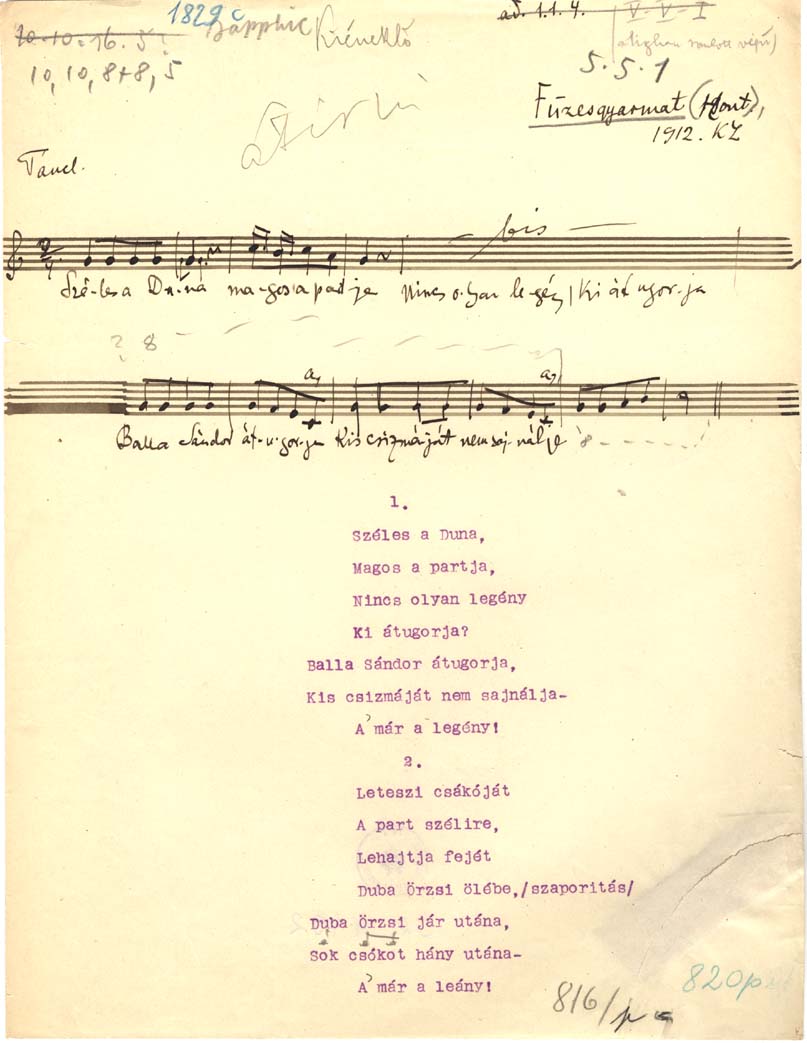 1829
ad. 1.1.4. V-V-I
10-10-16.5
Sapphic
10, 10, 8+8, 5
5.5.1
Füzesgyarmat (Hont),
1912. KZ
Táncl.
bis
Szé-les a Du-na ma-gos a partja Nincs o-lyan le-gény Ki át ugor-ja
? 8
Balla Sándor át-u-gor-ja Kis csizmáját nem saj-nál-ja
1.
Széles a Duna,
Magos a partja,
Nincs olyan legény
Ki átugorja?
Balla Sándor átugorja,
Kis csizmáját nem sajnálja-
A' már a legény!
2.
Leteszi csákóját
A part szélire,
Lehajtja fejét
Duba Örzsi ölébe,/szaporitás/
Duba Örzsi jár utána,
Sok csókot hány utána-
A' már a leány!
816/p
820p